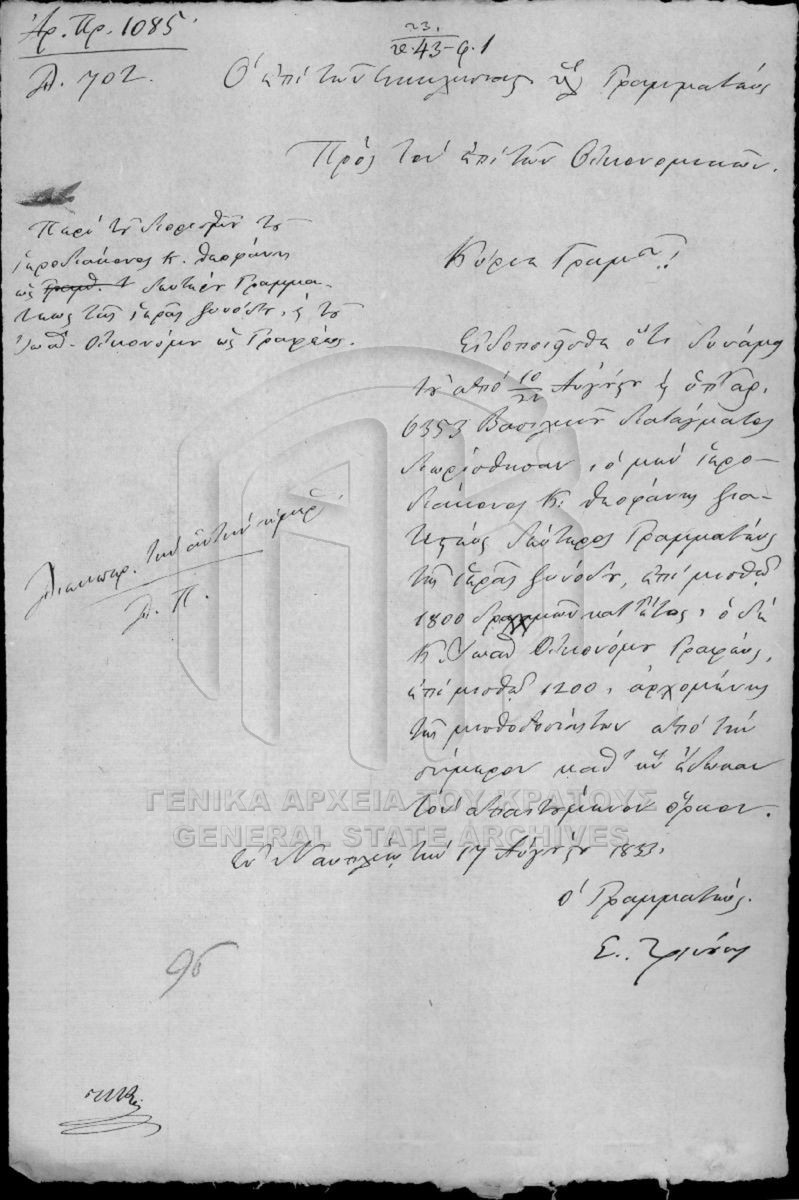 Ἀρ. Πρ. 1085
23.
43-φ.1
Δ. 702.
Ὁ ἐπὶ τῶν Ἐκκλησιαστικῶν Γραμματεὺς
Πρὸς τὸν ἐπὶ τῶν Οἰκονομικῶν.
Περὶ τοῦ διορισμοῦ τοῦ
ἱεροδιακόνου Κ. Θεοφάνους
ὡς δευτέρου Γραμμα-
τέως τῆς ἱερᾶς Συνόδου, καὶ τοῦ
Ἰωαν. Οἰκονόμου ὡς Γραφέως.
Κύριε Γραμμ!
Εἰδοποιεῖσθε ὅτι δυνάμει
τοῦ ἀπὸ 10/22 Αὐγούστου καὶ ὑπ' ἀρ.
6353 Βασιλικοῦ Διατάγματος
διωρίσθησαν, ὁ μὲν ἱερο-
διάκονος Κ. Θεοφάνης
δεύτερος Γραμματεὺς
τῆς ἱερᾶς Συνόδου, ἐπὶ μισθῷ
1800 δραχμῶν κατ' ἔτος, ὁ δὲ
Κ. Ἰωαν Οἰκονόμου Γραφεὺς,
ἐπὶ μισθῷ 1200, ἀρχομένης
τῆς μισθοδοσίας των ἀπὸ τὴν
σήμερον καθ' ἣν ἔδωκαν
τὸν ἀπαιτούμενον ὅρκον.
Ἐν Ναυπλίῳ τὴν 17 Αὐγούστου 1833.
ὁ Γραμματεὺς.
Δ. Π.
96
ΓΕΝΙΚΑ ΑΡΧΕΙΑ ΤΟΥ ΚΡΑΤΟΥΣ
GENERAL STATE ARCHIVES